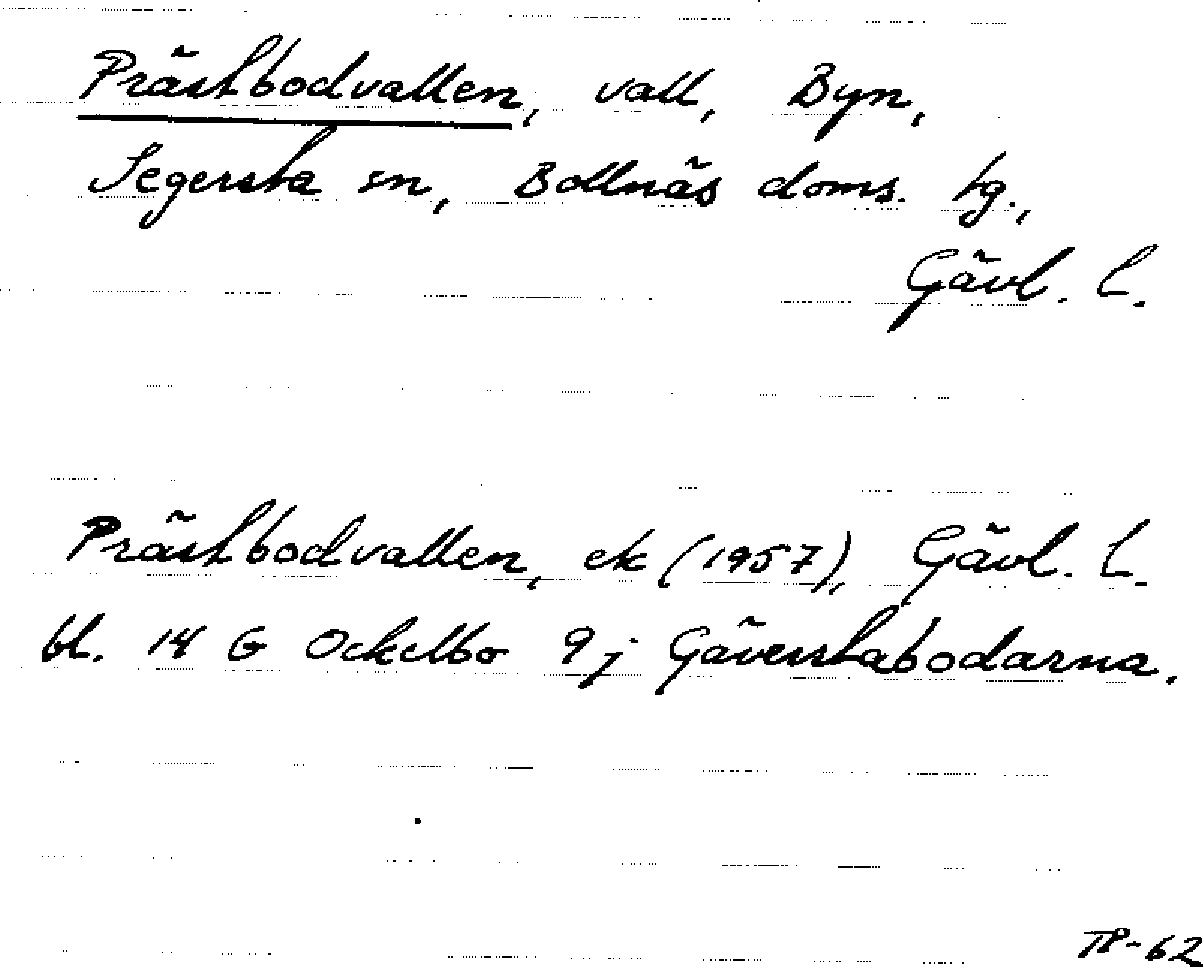 Prästbodvallen, vall, Byn,
Segersta sn, Bollnäs doms. tg.,
Gävl. l.
Prästbodvallen, ek (1957), Gävl. l.
bl. 14 G Ockelbo 9j Gäverstabodarna.
TP-62